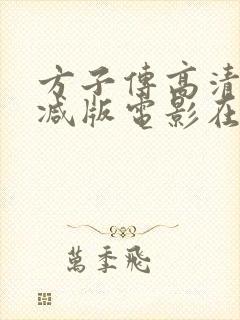 方子傳高清
减版電影在
萬季飛